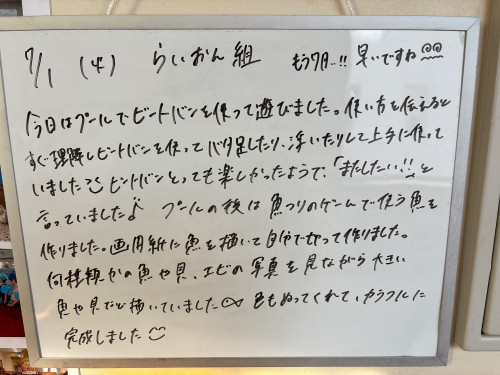 7/1 (火) らいおん組 もう7月..!! 早いですね
今日はプールでビート バンを使って遊びました。使い方を伝えると
すぐ理解しビート バンを使ってバタ足したり、浮いたりして上手に使って
いました ビート バンとっても楽しかったようで、「またしたい!!」と
言っていました♪ プールの後は魚つりのゲームで使う魚を
作りました。画用紙に魚を描いて自分で切って作りました。
何種類かの魚や貝、エビの写真を見ながら大きい
魚や貝など描いていました 色もぬってくれて、カラフルに
完成しました